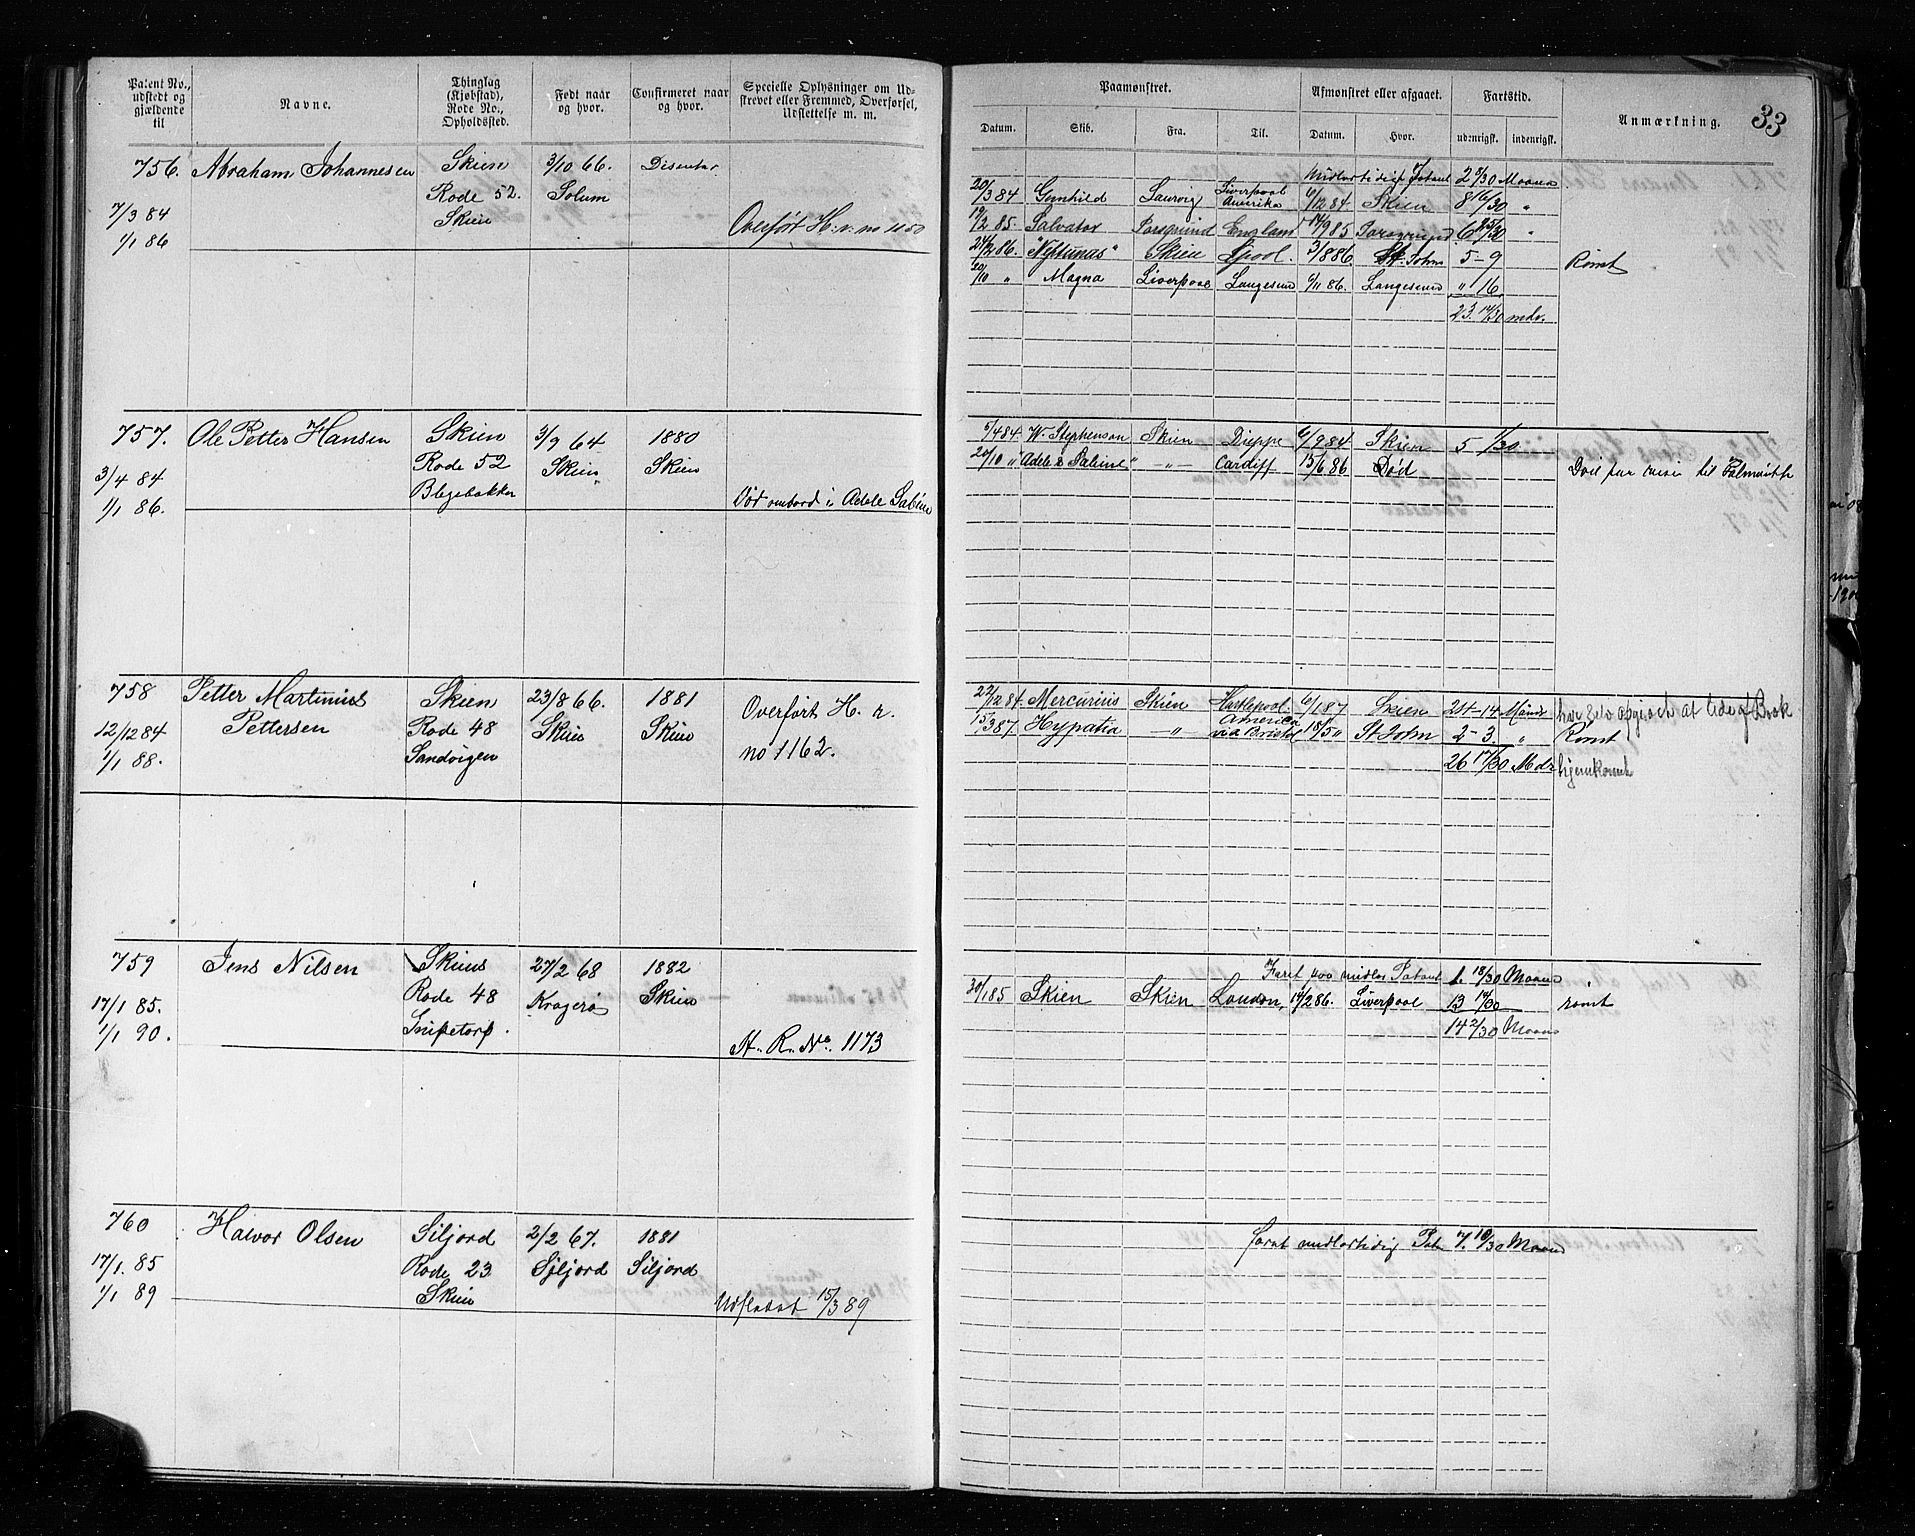 Patent No., udstedt og gjældende til
Navne.
Thinglag (Kjøbstad), Rode No., Opholdssted.
Født naar og hvor.
Confirmeret naar og hvor.
Specielle Oplysninger om Udskrevet eller Fremmed, Overførsel, Udslettelse m. m.
Paamønstret.
Afmønstret eller afgaaet.
Fartstid.
Anmærkning.
33
Datum.
Skib.
Fra.
Til.
Datum.
Hvor.
udenrigsk.
indenrigsk.
756. Abraham Johannesen Skien 3/10 66. Disenter
Rode 52. Solum
7/3 84 Skien
1/1 86 Overført H. r. no 1150
Midlertidigt Patent 2 3/30 Maaned
20/3 84 Gunhild Laurvig Liverpool Amerika 6/12 84 Skien 8 16/30 "
19/2 85 Salvator Porsgrund England 14/9 85 Porsgrund 6 25/30 "
24/2 86. "Neptunus" Skien Lpool. 3/8 86 St. John 5-9 Rømt
20/10 " Magna Liverpool Langesund 6/11 86. Langesund " 16
23. 14/30 mdr.
757. Ole Petter Hansen Skien 3/9 64 1880
Rode 52 Skien Skien
3/4 84 Blegebakken
1/1 86. Død ombord i Adele Sabine
5/4 84 W. Stephenson Skien Dieppe 6/9 84 Skien 5 1/30
20/10 " "Adele & Sabine" -"- Cardiff 15/6 86 Død
758 Petter Martinius Skien 23/8 66. 1881 Overført H. r.
Pettersen Rode 48 Skien Skien no 1162.
12/12 84 Sandvigen
1/1 88.
22/12 84. Mercurius Skien Hartlepool 6/1 87 Skien 24-14 Maan
15/3 87. Hypatia -"- America via Bristol 18/5 " St John 2-3. " Rømt
26 17/30 Mdr hjemkomt
759 Jens Nilsen Skiens 27/2 68 1882
Rode 48 Kragerø Skien
17/1 85. Snipetorp.
1/1 90. H. R. No. 1173
Faret paa midler. Patent 1. 18/30 Maaned
30/1 85 Skien Skien London, 14/2 86. Liverpool 13 14/30 rømt
14 2/30 Maans
760 Halvor Olsen Siljord 2/2 67. 1881
17/1. 85 Rode 23 Siljord Siljord
1/1 89 Skien Udslettet 15/3 89
faret midlertidig Pat 7. 10/30 Maaned